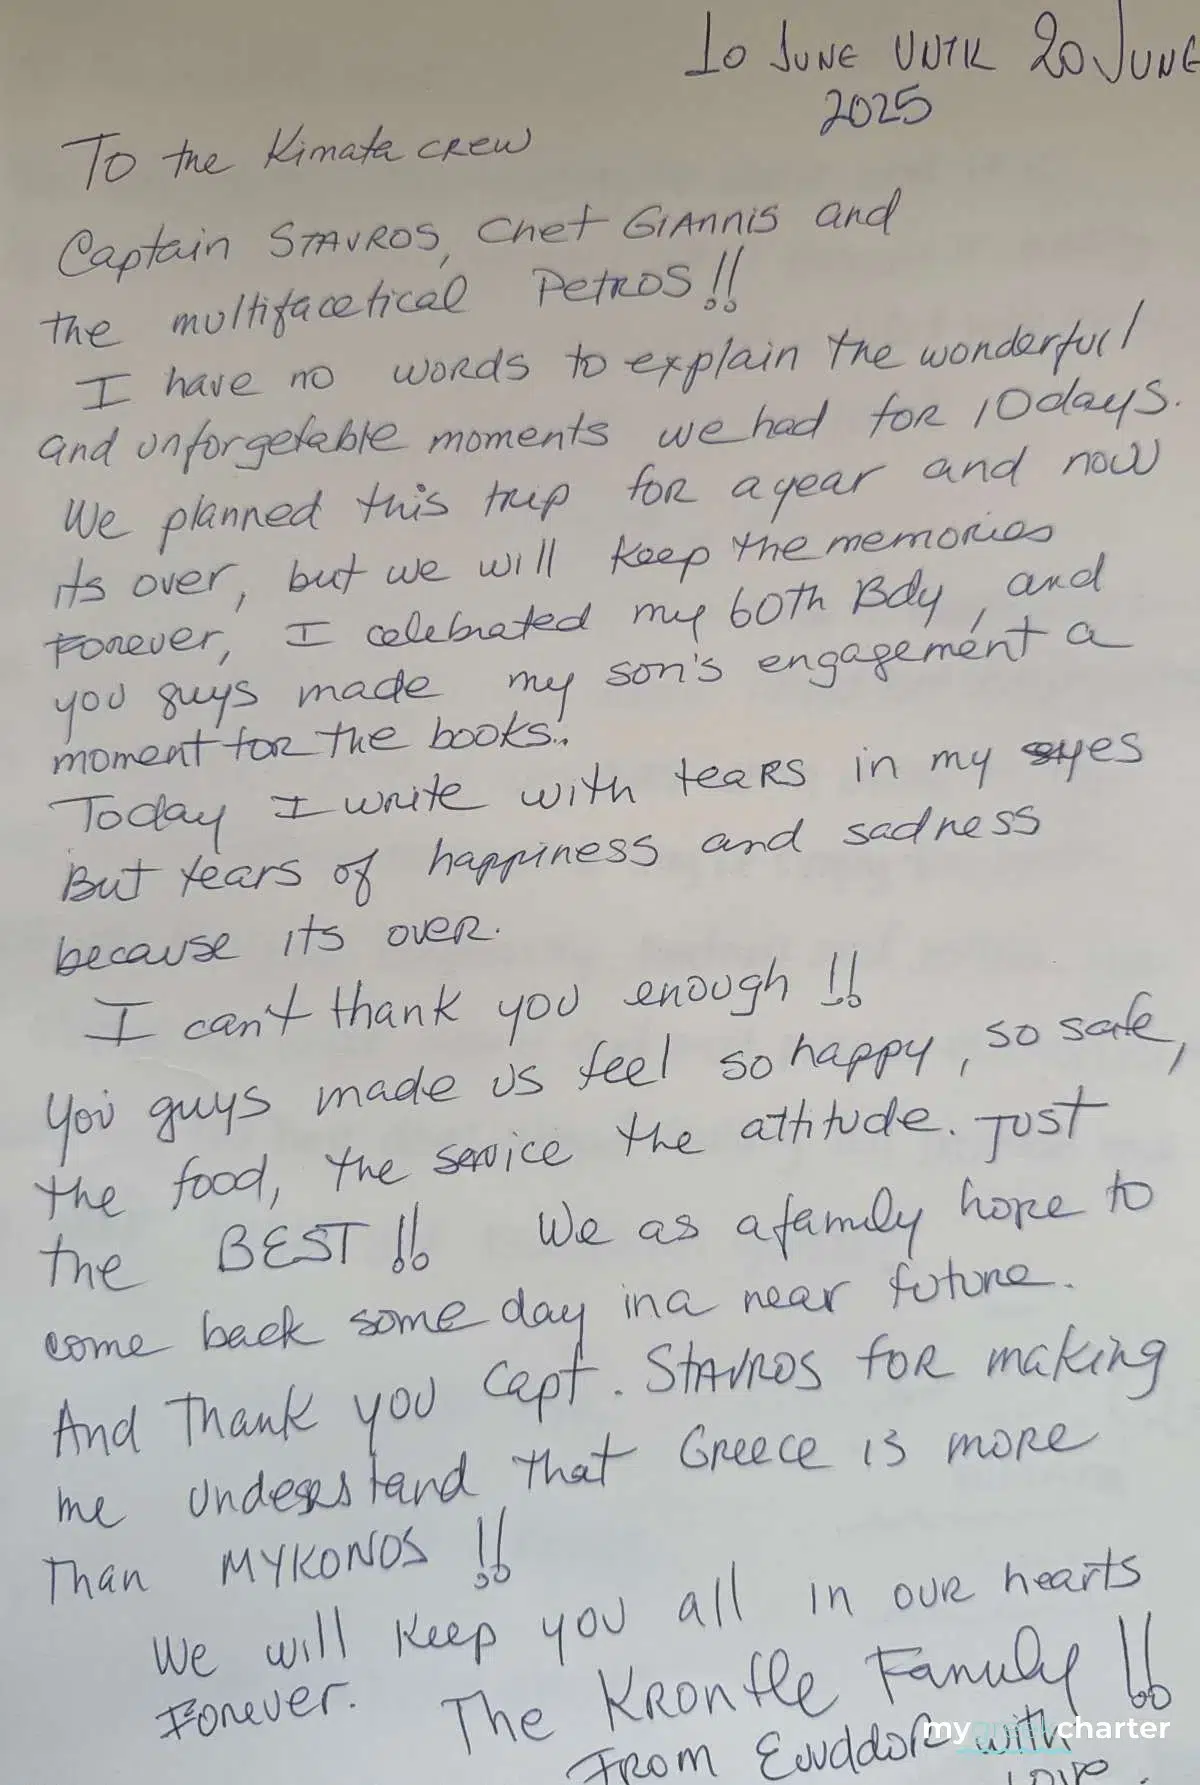 10 JUNE UNTIL 20 JUNE
2025
To the Kimata crew
Captain STAVROS, Chef GIANNIS and
the multifacetical PETROS!!
I have no words to explain the wonderful
and unforgetable moments we had for 10 days.
We planned this trip for a year and now
its over, but we will keep the memories
Forever, I celebrated my 60th Bdy, and
you guys made my son's engagement a
moment for the books..
Today I write with tears in my eyes
But tears of happiness and sadness
because its over.
I can't thank you enough!!
You guys made us feel so happy, so safe,
the food, the service the attitude. Just
the BEST!! We as a family hope to
come back some day in a near future.
And Thank you Capt. STAVROS for making
me understand that Greece is more
Than MYKONOS!!
We will keep you all in our hearts
Forever.
The Family!!
From with
Love.
mygreekcharter